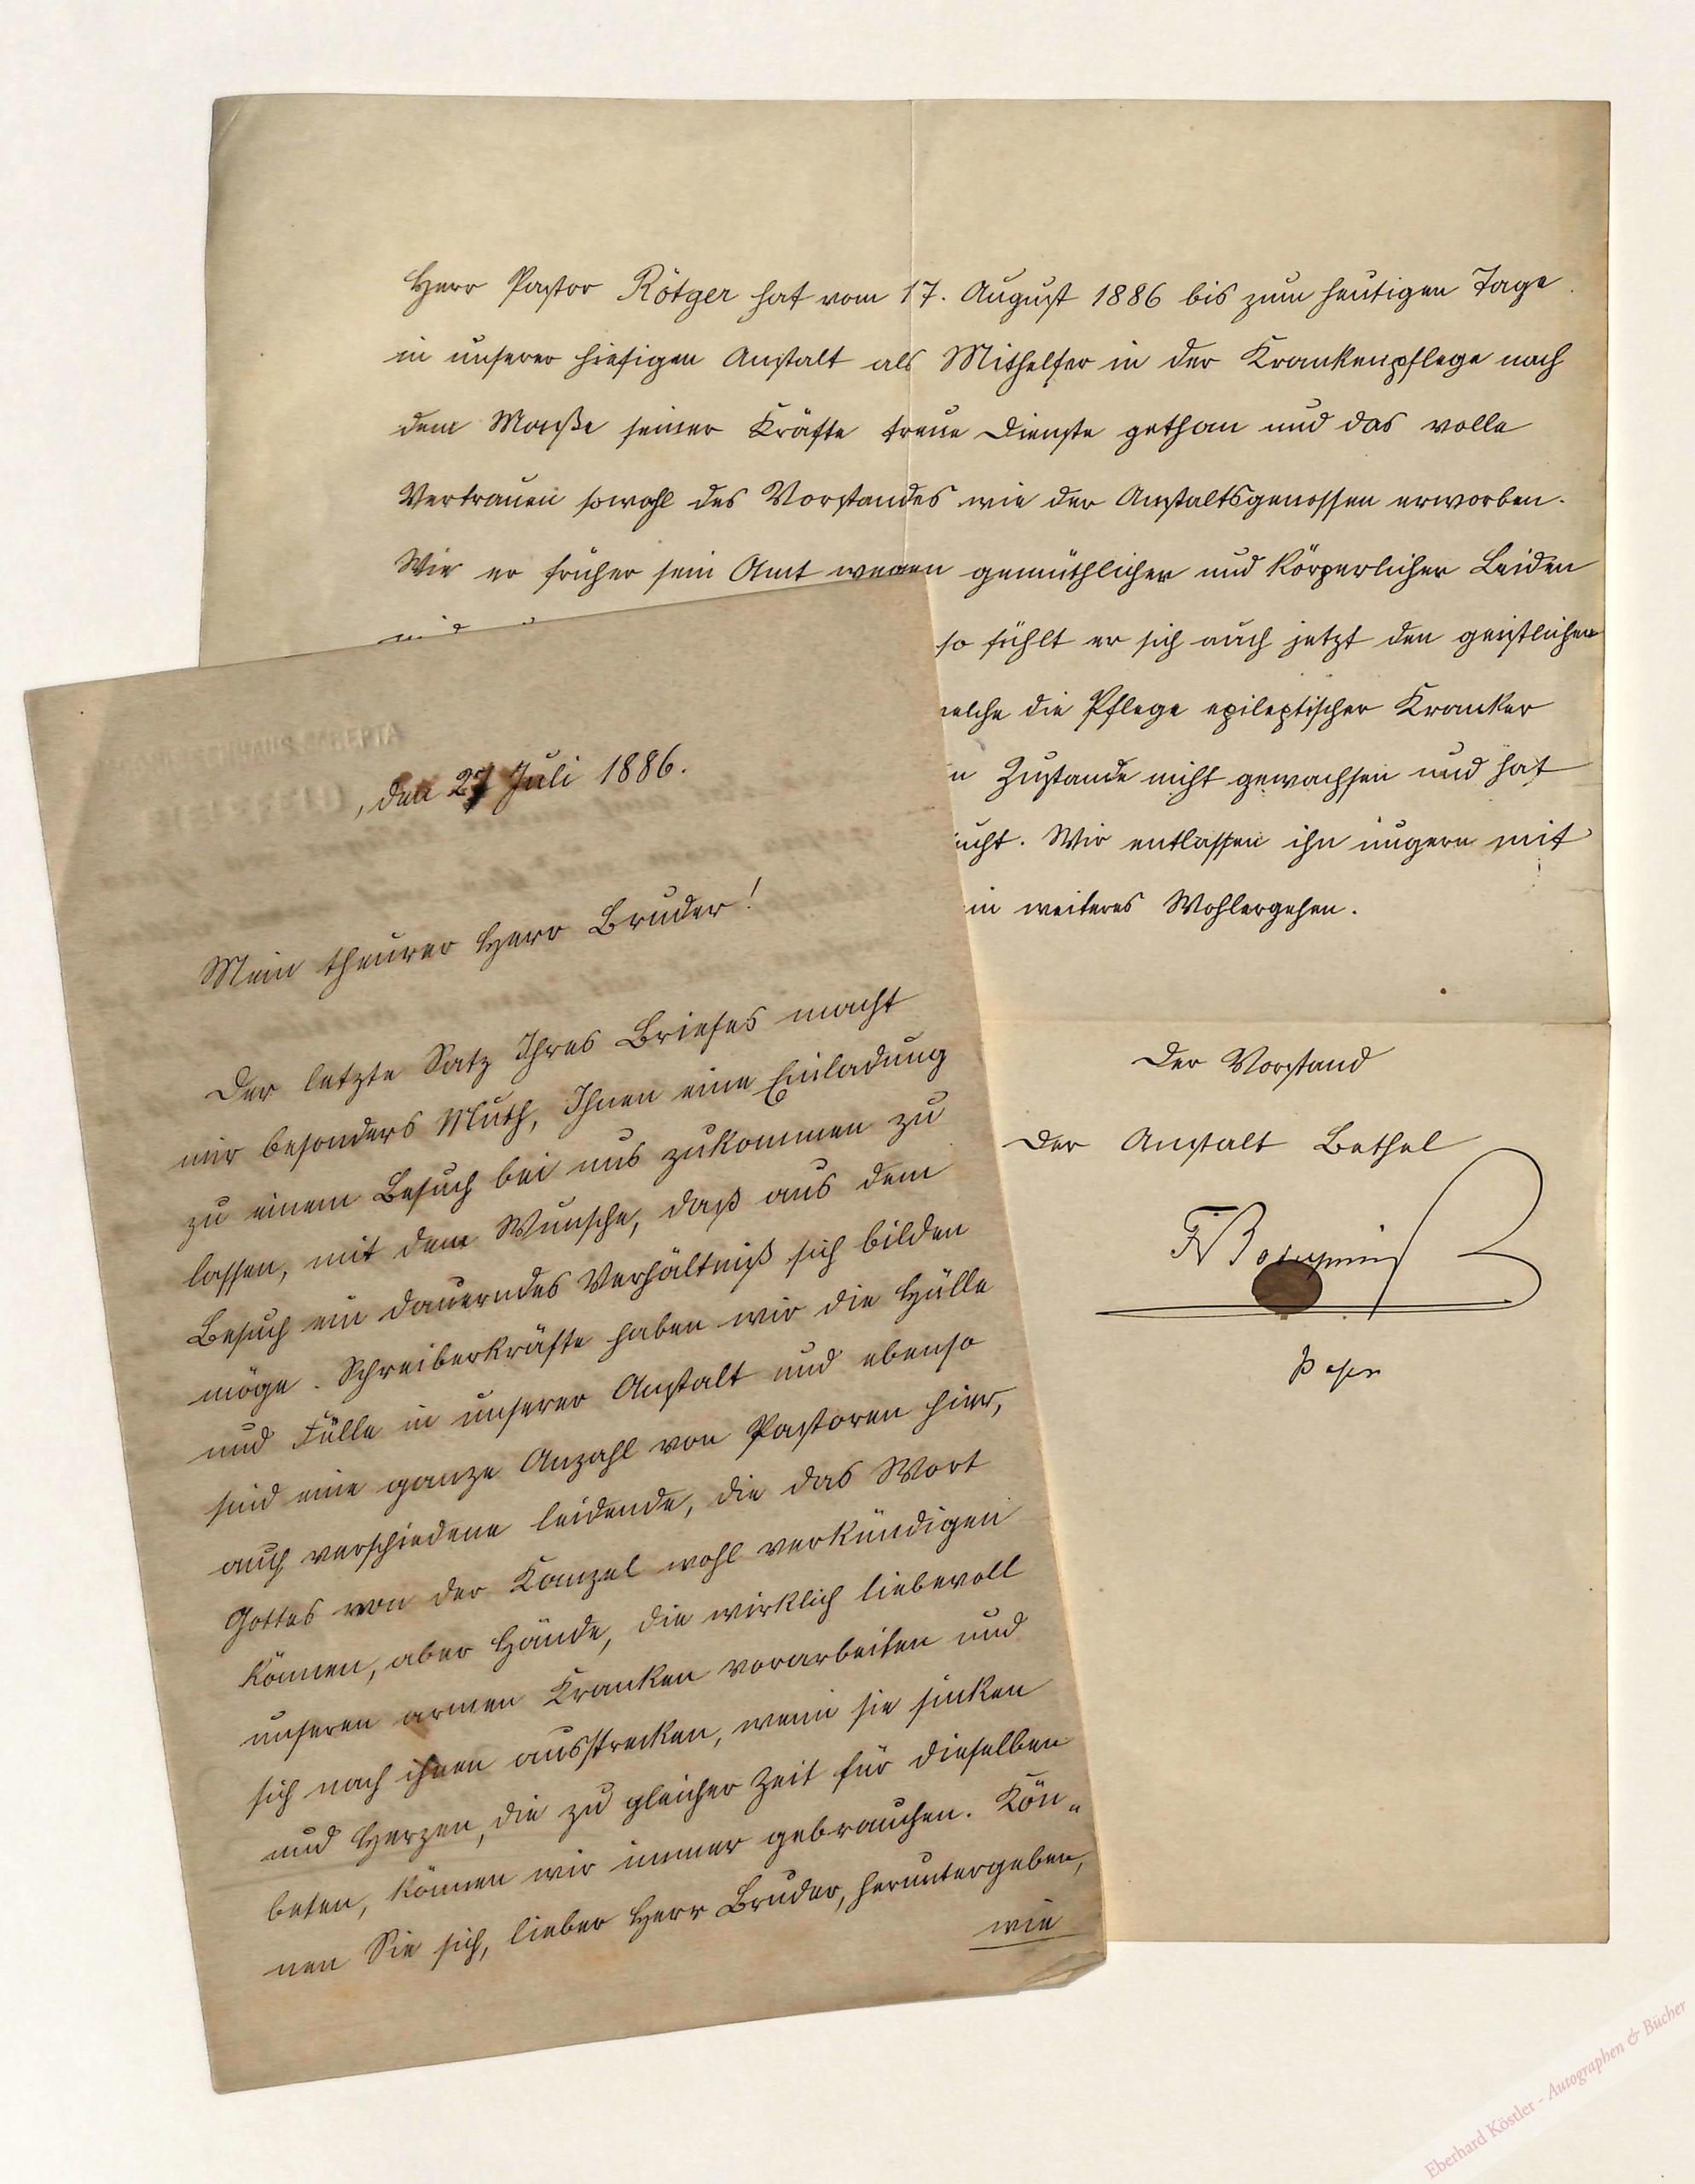 Herr Pastor Rötger hat vom 17. August 1886 bis zum heutigen Tage
in unserer hiesigen Anstalt als Mithelfer in der Krankenpflege nach
dem Maaße seiner Kräfte treue Dienste gethan und das volle
Vertrauen sowohl des Vorstandes wie der Anstaltsgenossen erworben.
Wie er früher sein Amt wegen gemüthlicher und körperlicher Leiden
so fühlt er sich auch jetzt den geistlichen
welche die Pflege epileptischer Kranker
Zustande nicht gewachsen und hat
Wir entlassen ihn ungern mit
weiteres Wohlergehen.
Der Vorstand
der Anstalt Bethel
Pastor
, den 27 Juli 1886.
Mein theurer Herr Bruder!
Der letzte Satz Ihres Briefes macht
mir besonders Muth, Ihnen eine Einladung
zu einem Besuch bei uns zukommen zu
lassen, mit dem Wunsche, daß aus dem
Besuch ein dauerndes Verhältniß sich bilden
möge. Schreiberkräfte haben wir die Hülle
und Fülle in unserer Anstalt und ebenso
sind eine ganze Anzahl von Pastoren hier,
auch verschiedene leidende, die das Wort
Gottes von der Kanzel wohl verkündigen
können, aber Hände, die wirklich liebevoll
unseren armen Kranken vorarbeiten und
sich nach ihnen ausstrecken, wenn sie sinken
und Herzen, die zu gleicher Zeit für dieselben
beten, können wir immer gebrauchen. Kön-
nen Sie sich, lieber Herr Bruder, heruntergeben,
wie
Eberhard Köstler - Autographen & Bücher